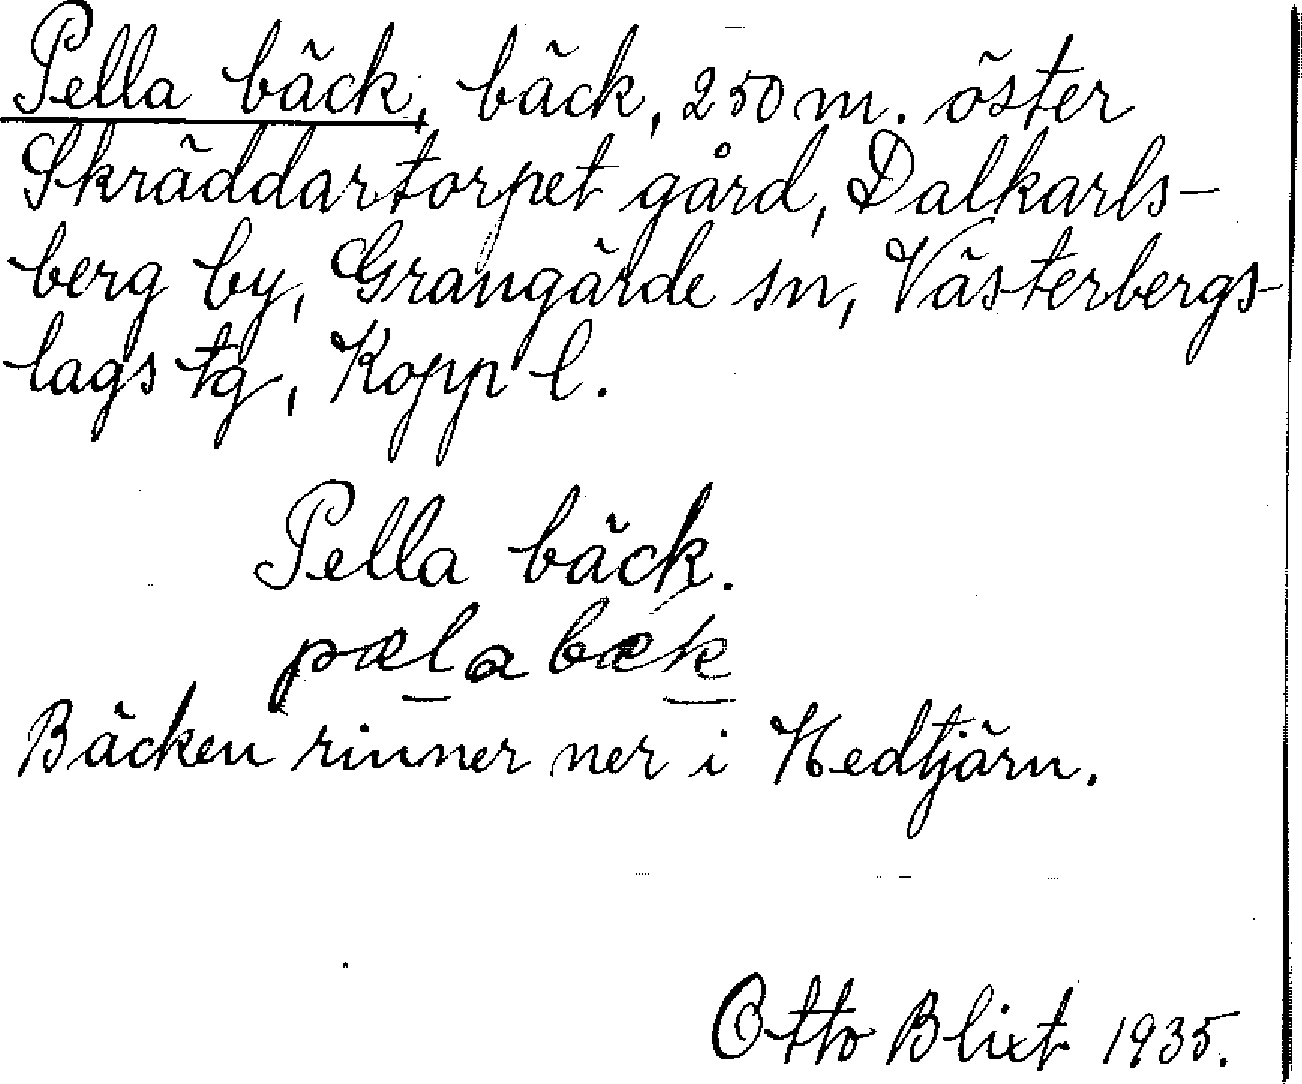 Pella bäck, bäck, 250 m. öster
Skräddartorpet gård, Dalkarls-
berg by, Grangärde sn, Västerbergs-
lags tg, Kopp l.
Pella bäck.
pæl̲a bæk̲
Bäcken rinner ner i Hedtjärn.
Otto Blixt 1935.